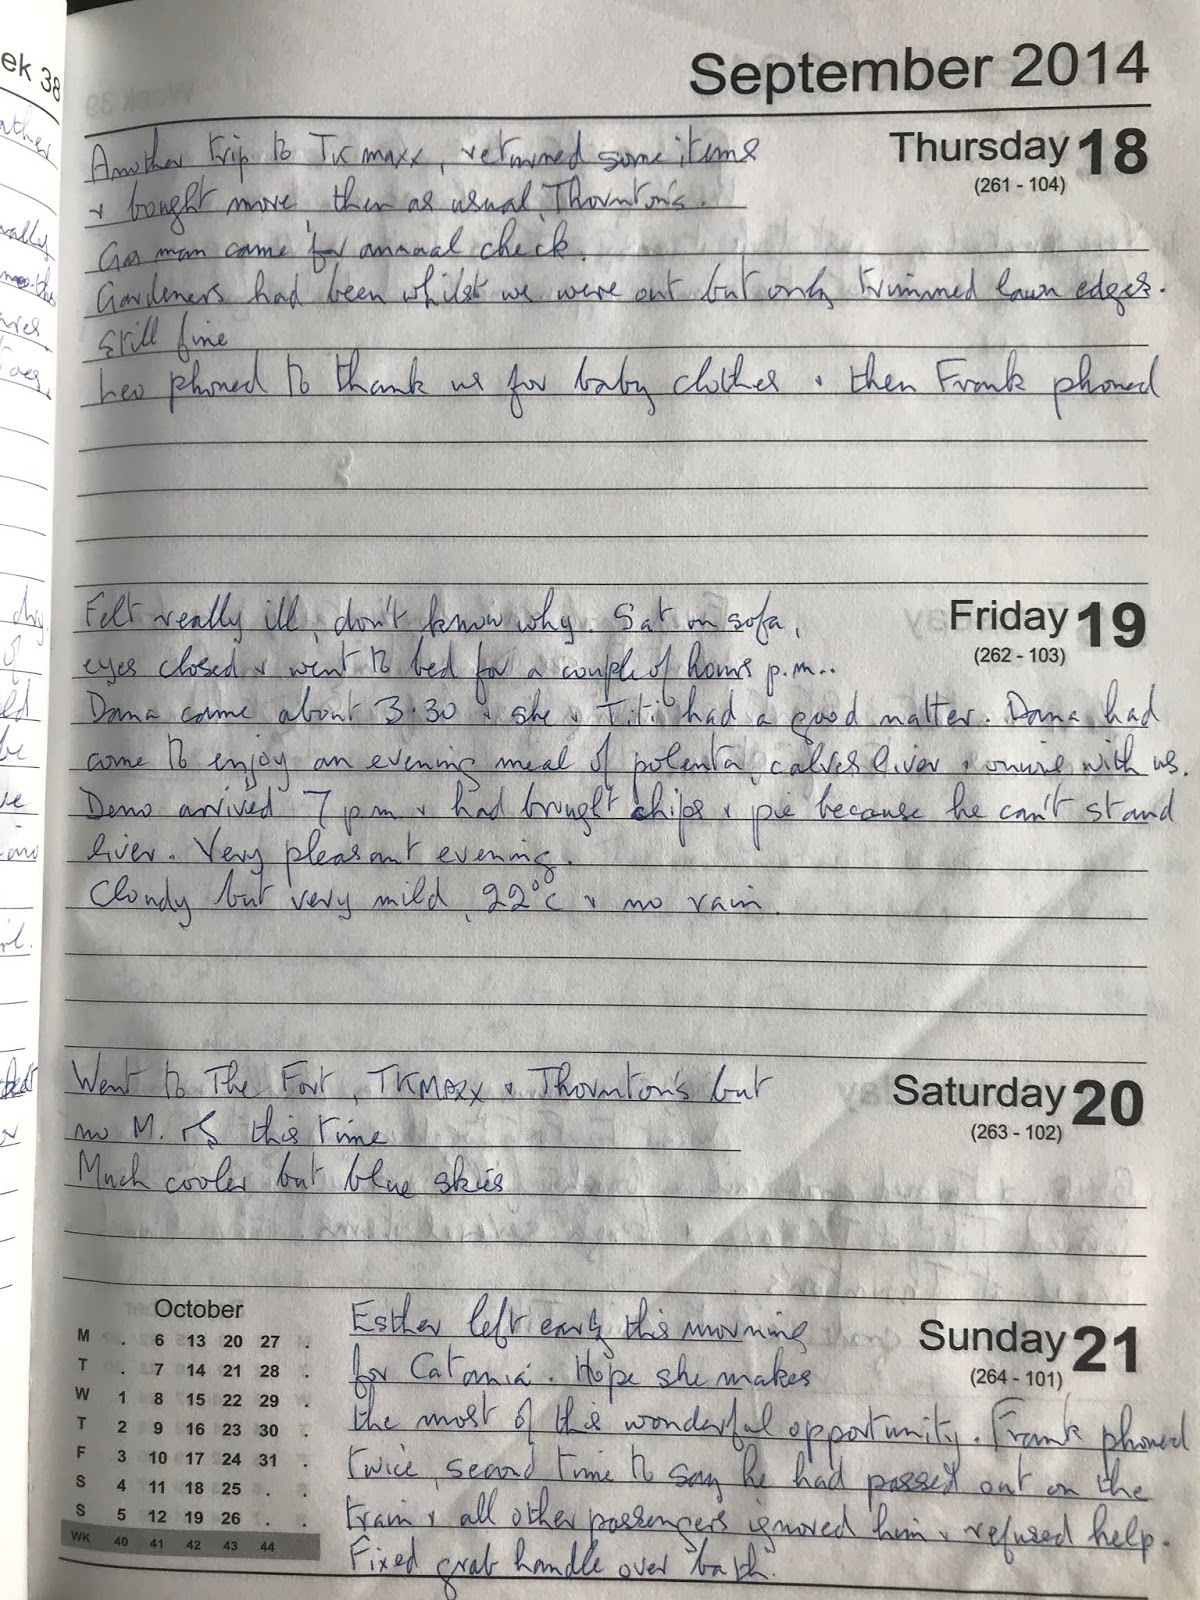 ek 38
September 2014
Thursday 18
(261 - 104)
Another trip to TK maxx, returned some items
& bought more then as usual, Thornton's.
Gas man came for annual check.
Gardeners had been whilst we were out but only trimmed lawn edges.
Still fine
Leo phoned to thank us for baby clothes & then Frank phoned
Friday 19
(262 - 103)
Felt really ill, don't know why. Sat on sofa,
eyes closed & went to bed for a couple of hours p.m..
Dana came about 3.30 & she & Titi had a good natter. Dana had
come to enjoy an evening meal of polenta, calves liver & onions with us.
Deno arrived 7 pm & had brought chips & pie because he can't stand
liver. Very pleasant evening.
Cloudy but very mild, 22°C & no rain.
Saturday 20
(263 - 102)
Went to The Fort, TKMAXX & Thornton's but
no M. & S this time
Much cooler but blue skies
Sunday 21
(264 - 101)
Esther left early this morning
for Catania. Hope she makes
the most of this wonderful opportunity. Frank phoned
twice, second time to say he had passed out on the
train & all other passengers ignored him & refused help.
Fixed grab handle over bath.
October
M . 6 13 20 27 .
T . 7 14 21 28 .
W 1 8 15 22 29 .
T 2 9 16 23 30 .
F 3 10 17 24 31 .
S 4 11 18 25 . .
S 5 12 19 26 . .
WK 40 41 42 43 44